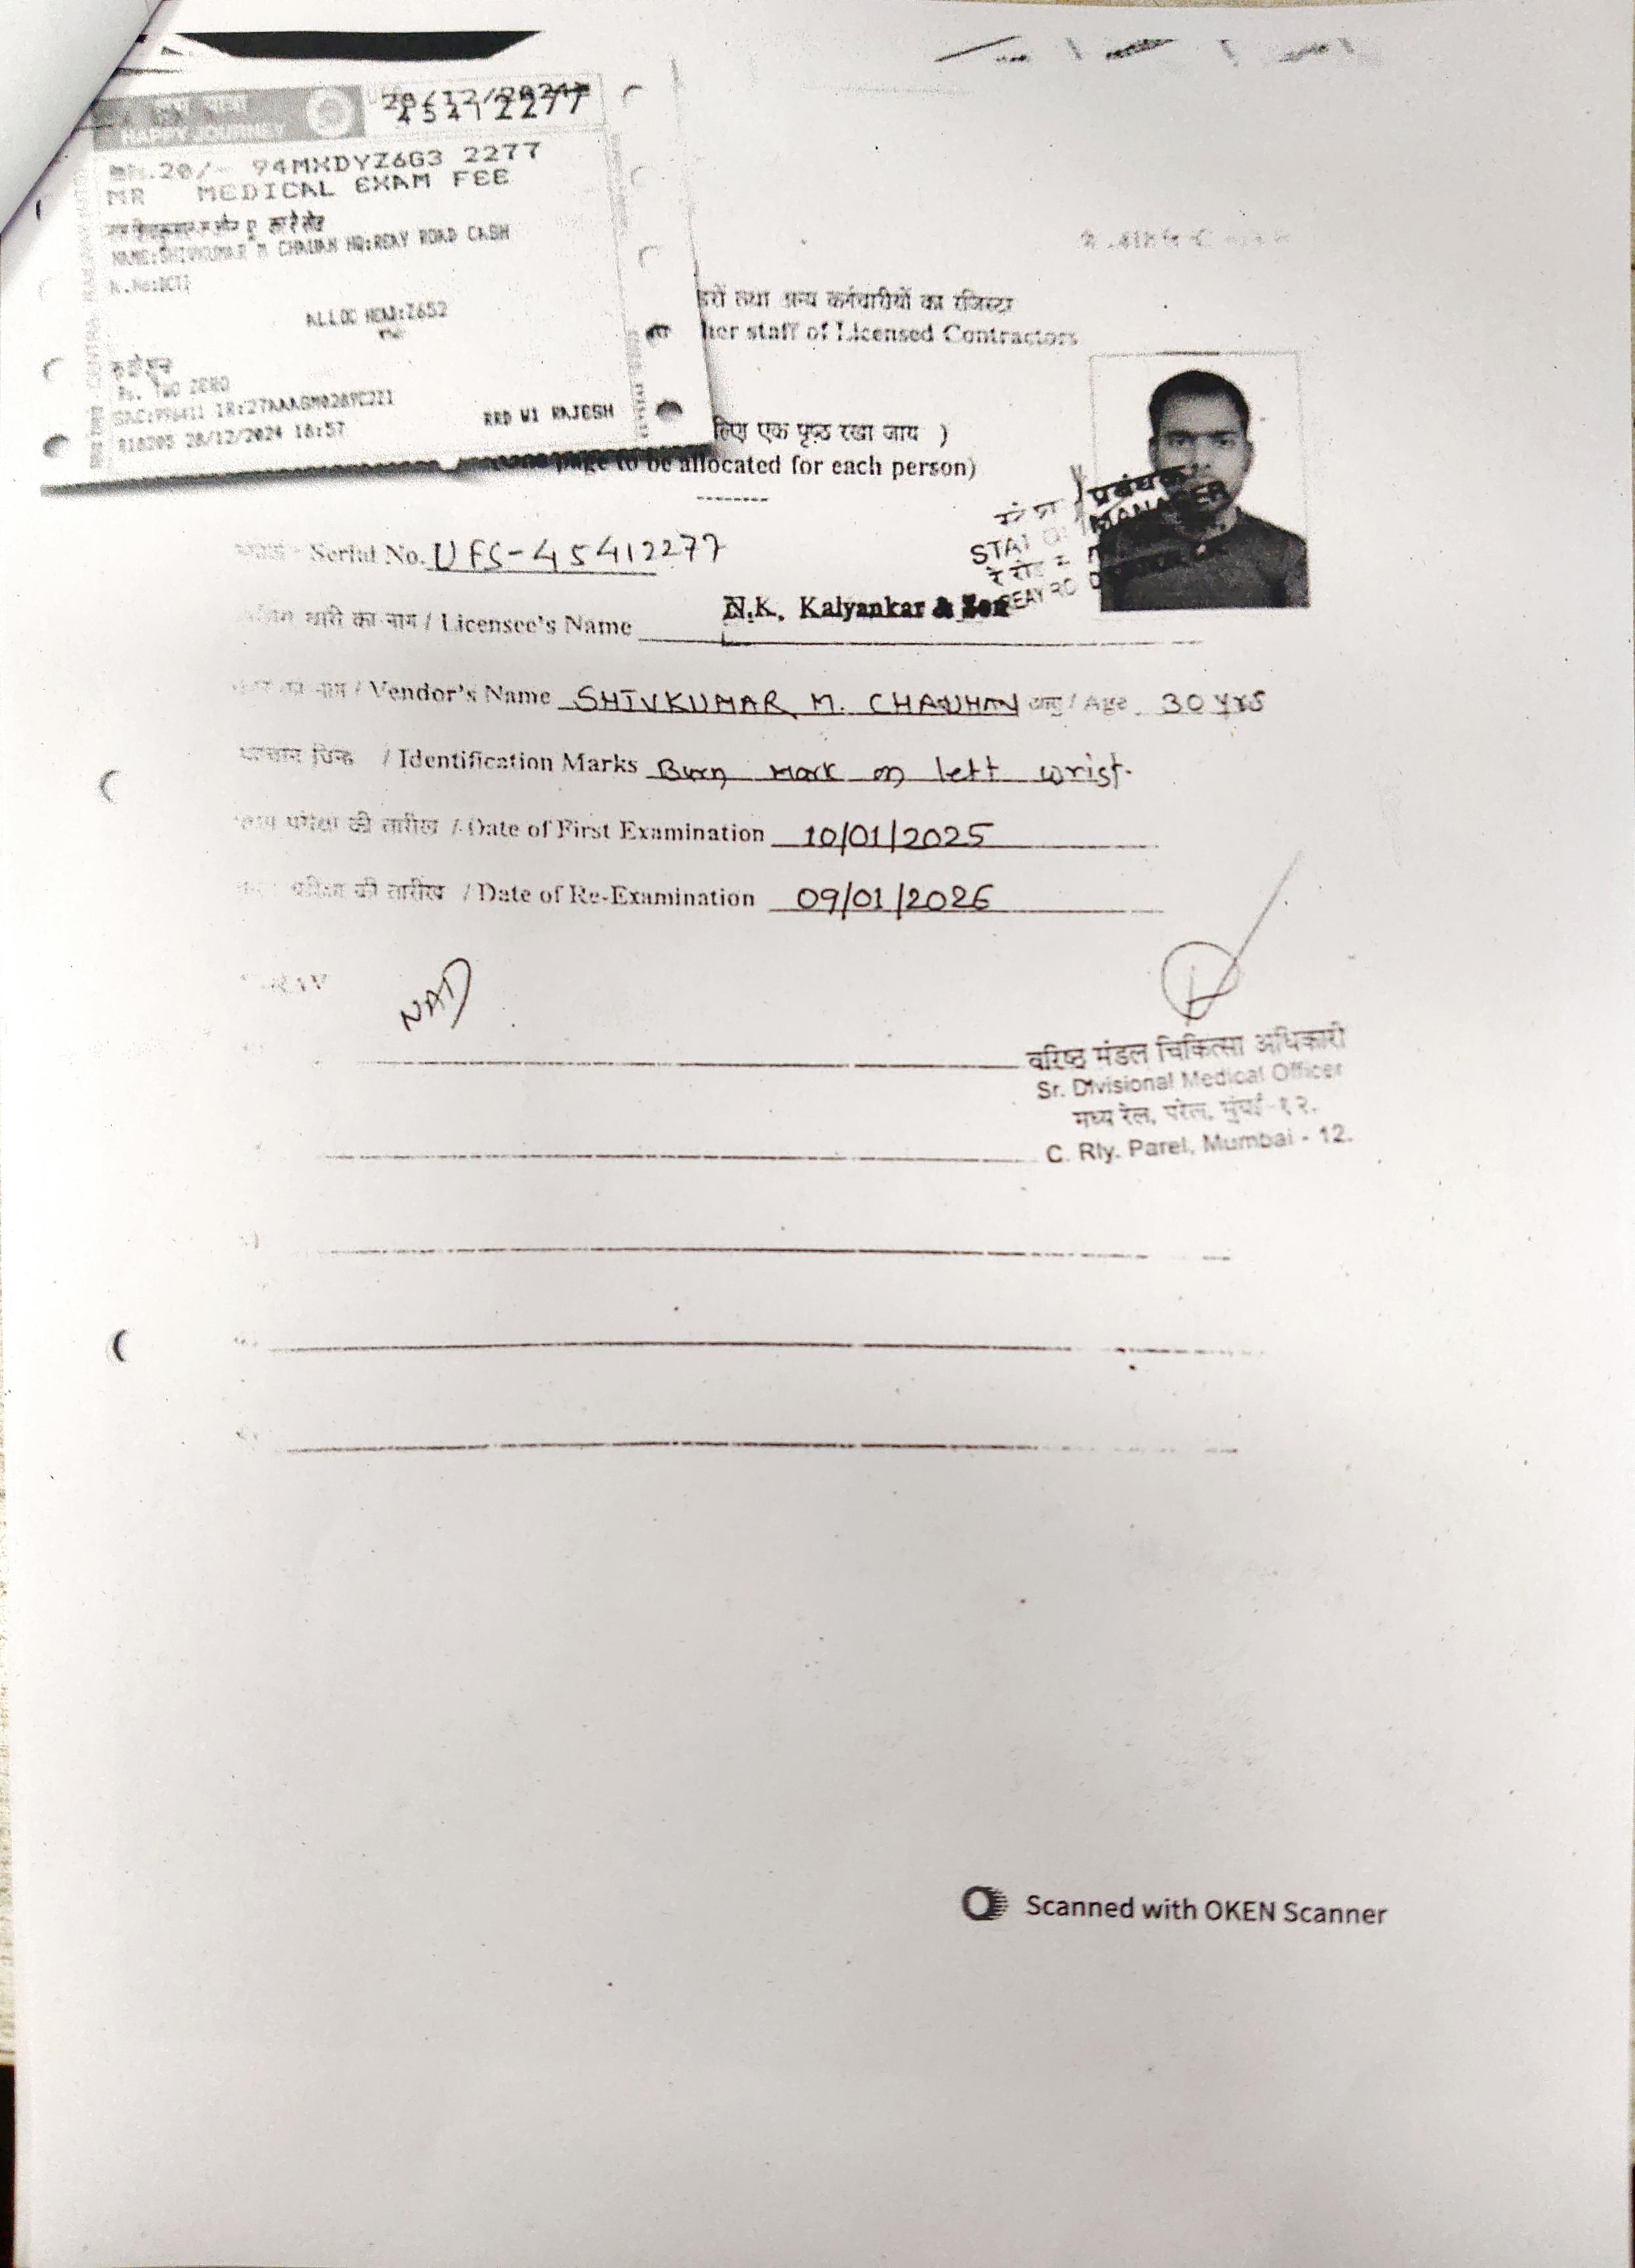 HAPPY JOURNEY
28/12/2024
45412277
20/- 94MXDYZ6G3 2277
MR MEDICAL EXAM FEE
NAME:SHIVKUMAR M CHAUAN HQ:REAY ROAD CASH
ALLOC HEAD:Z652
Rs. TWO ZERO
RRD W1 RAJESH
28/12/2024 18:57
तथा अन्य कर्मचारीयों का रजिस्टर
her staff of Licensed Contractors
लिए एक पृष्ठ रखा जाय )
page to be allocated for each person)
प्रबंधक
MANAGER
Serial No. UFS-45412277
धारी का नाम / Licensee's Name N.K. Kalyankar & Son
का नाम / Vendor's Name SHIVKUMAR M. CHAUHAN आयु / Age 30 yrs
चिन्ह / Identification Marks Burn mark on left wrist.
परीक्षा की तारीख / Date of First Examination 10/01/2025
की तारीख / Date of Re-Examination 09/01/2026
NAD
वरिष्ठ मंडल चिकित्सा अधिकारी
Sr. Divisional Medical Officer
मध्य रेल, परेल, मुंबई-१२.
C. Rly. Parel, Mumbai - 12.
Scanned with OKEN Scanner